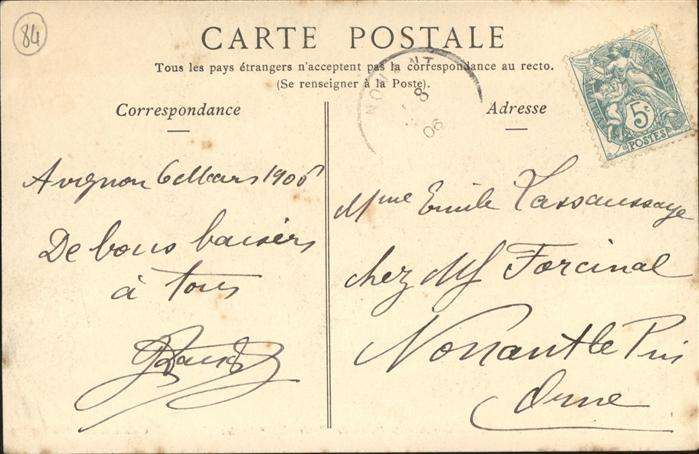 84
CARTE POSTALE
Tous les pays étrangers n'acceptent pas la correspondance au recto.
(Se renseigner à la Poste).
Correspondance
Adresse
5c
POSTES
NONANT
8
06
Avignon 6 Mars 1906
De bons baisers
à tous
Mme Emile
chez Mr Forcinal
Nonant le Pin
Orne